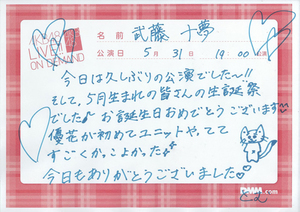 AKB48
LIVE!!
ON DEMAND
名前 武藤十夢
公演日 5月31日 19:00公演
今日は久しぶりの公演でした〜!!
そして、5月生まれの皆さんの生誕祭
でした♪ お誕生日おめでとうございます
優花が初めてユニットやってて
すごくかっこよかった♪
今日もありがとうございました♡
DMM.com
とむ